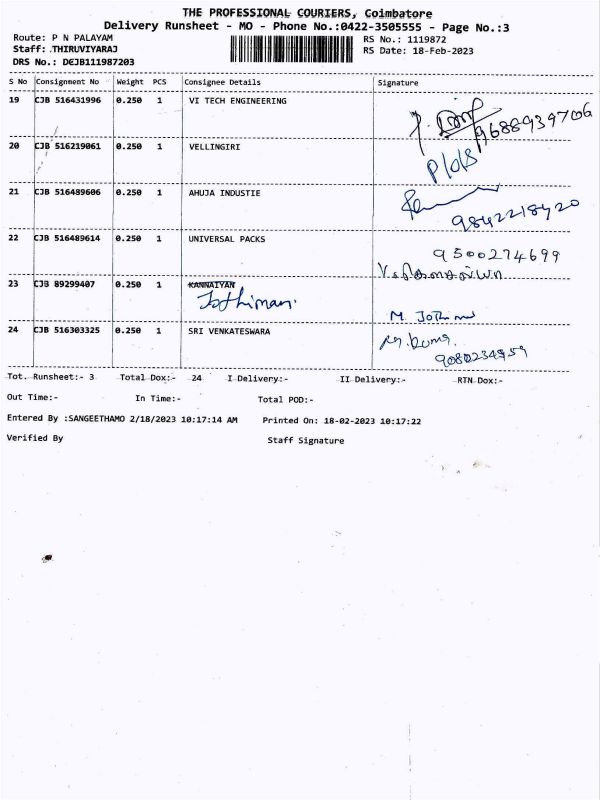 THE PROFESSIONAL COURIERS, Coimbatore
Delivery Runsheet - MO - Phone No.:0422-3505555 - Page No.:3
Route: P N PALAYAM RS No.: 1119872
Staff: .THIRUVIYARAJ RS Date: 18-Feb-2023
DRS No.: DCJB111987203
S No Consignment No Weight PCS Consignee Details Signature
19 CJB 516431996 0.250 1 VI TECH ENGINEERING
9688939706
20 CJB 516219061 0.250 1 VELLINGIRI
21 CJB 516489606 0.250 1 AHUJA INDUSTIE
9842218420
22 CJB 516489614 0.250 1 UNIVERSAL PACKS 9500274699
23 CJB 89299407 0.250 1 KANNAIYAN
Jothimani M. Jothimani
24 CJB 516303325 0.250 1 SRI VENKATESWARA
9080234959
Tot. Runsheet:- 3 Total Dox:- 24 I Delivery:- II Delivery:- RTN Dox:-
Out Time:- In Time:- Total POD:-
Entered By :SANGEETHAMO 2/18/2023 10:17:14 AM Printed On: 18-02-2023 10:17:22
Verified By Staff Signature